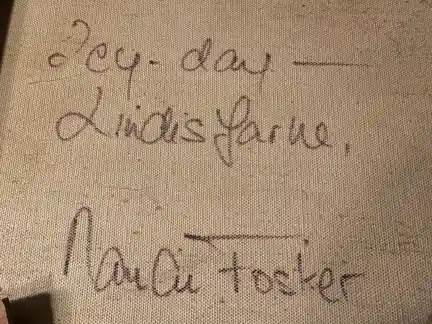 Icy-day —
Lindisfarne.
Foster